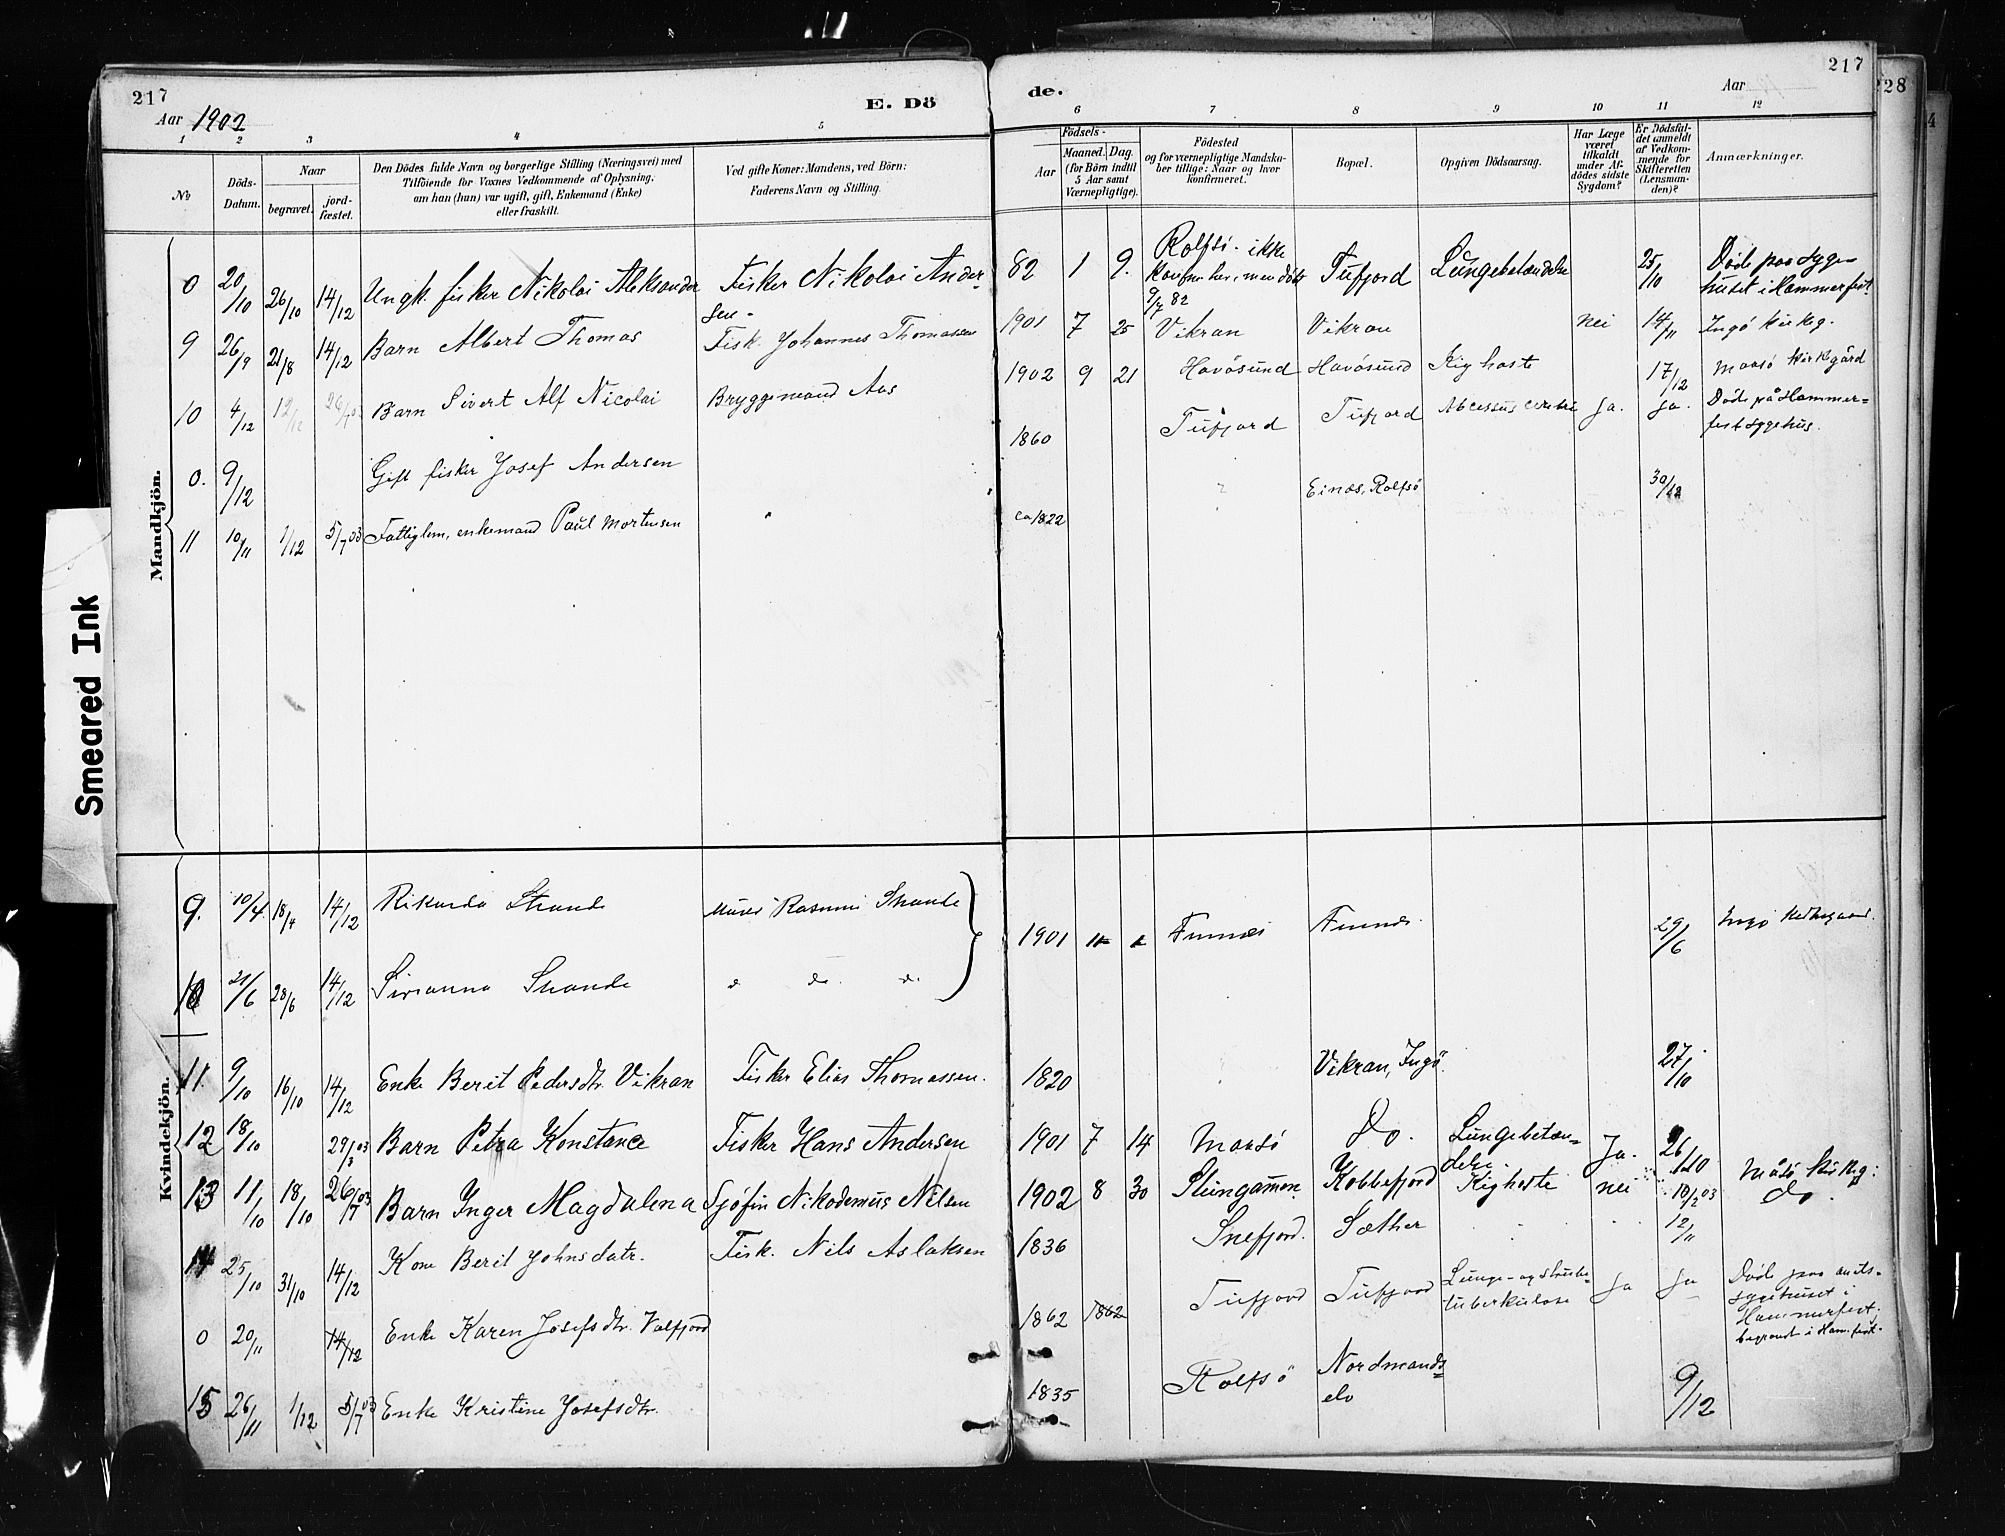 217
Aar 1902
E. Dö
1 2 3 4 5
No
Döds-
Datum.
Naar
begravet.
jord-
fæstet.
Den Dödes fulde Navn og borgerlige Stilling (Næringsvei) med
Tilföiende for Voxnes Vedkommende af Oplysning,
om han (hun) var ugift, gift, Enkemand (Enke)
eller fraskilt.
Ved gifte Koner: Mandens, ved Börn:
Faderens Navn og Stilling.
Mandkjön.
0 20/10 26/10 14/12 Ungk. fisker Nikolai Aleksander Fisker Nikolai Ander-
sen.
9 26/9 21/8 14/12 Barn Albert Thomas Fisk. Johannes Thomassen
10 4/12 12/12 Barn Sivert Alf Nicolai Bryggemand Aas
0. 9/12 Gift fisker Josef Andersen
11 10/11 1/12 5/7 03 Fattiglem, enkemand Paul Mortensen
Kvindekjön.
9. 10/4 18/4 14/12 Rikarda Strande
10 21/6 28/6 14/12 Strande
11. 9/10 16/10 14/12 Enke Berit Pedersdtr. Vikran Fisker Elias Thomassen.
12 18/10 29/3 03 Barn Petra Konstance Fisker Hans Andersen
13 11/10 18/10 26/7 03 Barn Inger Magdalena Sjöfin Nikodemus Nilsen
14 25/10 31/10 14/12 Kone Berit Johnsdatr. Fisk. Nils Aslaksen
0 20/11 14/12 Enke Karen Josefsdtr.
15 26/11 1/12 5/7 03 Enke Kristine Josefsdtr.
de.
Aar
217
6 7 8 9 10 11 12
Födsels-
Aar
Maaned. Dag.
(for Börn indtil
5 Aar samt
Værnepligtige).
Födested
og for værnepligtige Mandska-
ber tillige: Naar og hvor
konfirmeret.
Bopæl.
Opgiven Dödsaarsag.
Har Læge
været
tilkaldt
under Af-
dödes sidste
Sygdom?
Er Dödsfal-
det anmeldt
af Vedkom-
mende for
Skifteretten
(Lensman-
den)?
Anmærkninger.
82 1 9. Rolfsö. ikke Tufjord Lungebetændelse 25/10 Döde paa Syge-
huset i Hammerfest.
9/7 82
1901 7 25 Vikran Vikran nei 14/11 Ingö kirkeg.
1902 9 21 Havösund Havösund Kighoste 17/12 Maasö kirkegård
1860 Tufjord Tufjord Abcessus cerebri Ja. Ja. Döde på Hammer=
fest sygehus.
ca 1822 Einæs, Rolfsö 30/12
1901 29/6
1820 Vikran, Ingö. 27/10
1901 7 14 Maasö Do. Lungebetæn=
delse Ja. 26/10
1902 8 30 Slungamen Kobbefjord Kighoste nei 10/2 03 Måsö kirkeg:
do.
1836 Snefjord. Sæther 12/11
1862 1862 Tufjord Tufjord Lunge- og Strube-
tuberkulose Ja Ja Döde paa amts-
sygehuset i
Hammerfest;
begravet i Ham.fest.
1835 Rolfsö Nordmands=
elv 9/12
28
4
Smeared Ink